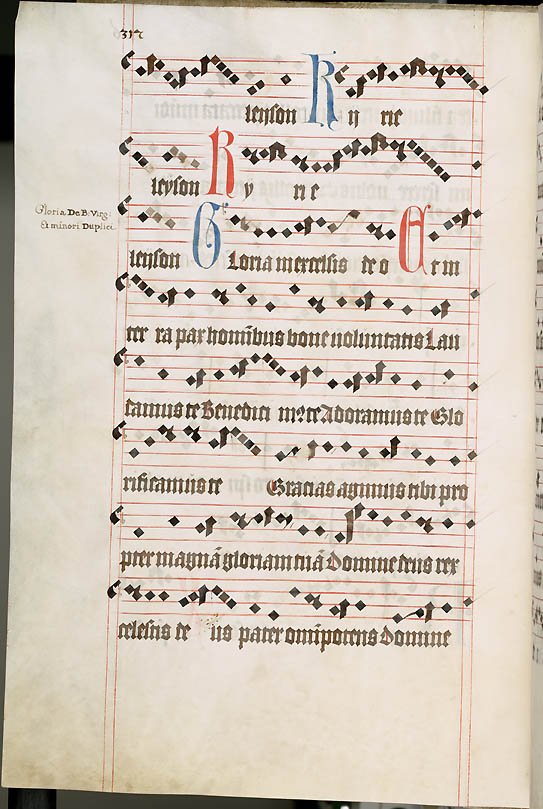 leyson Ky rie
leyson Ky ri e
Gloria De B. Virg:
Et minori Duplici
leyson Gloria in excelsis de o Et in
ter ra pax hominibus bone uoluntatis Lau
damus te Benedici mꝰ te Adoramus te Glo
rificamus te Gracias agimus tibi pro
pter magnā gloriam tuā Domine deus rex
celestis de us pater om̄ipotens domine